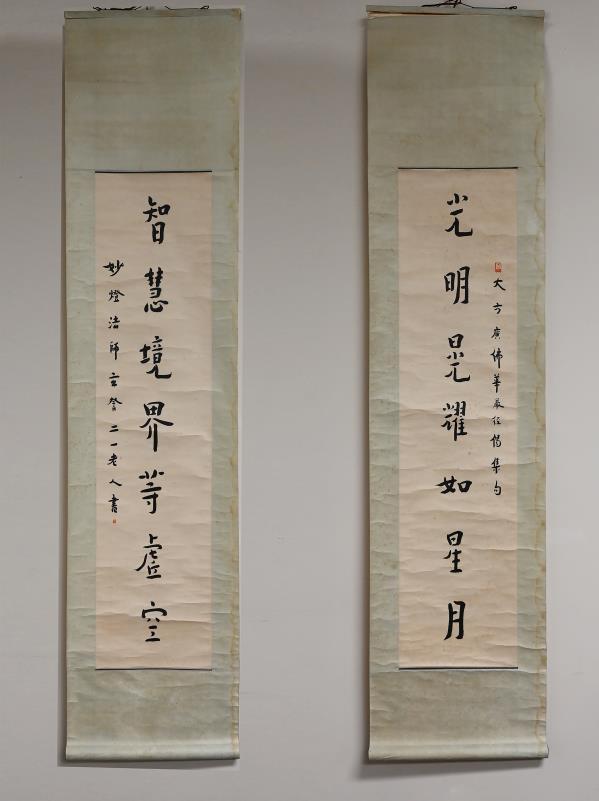 大方廣佛華嚴經偈集句
光明晃耀如星月
智慧境界等虛空
妙燈法師玄詧二一老人書